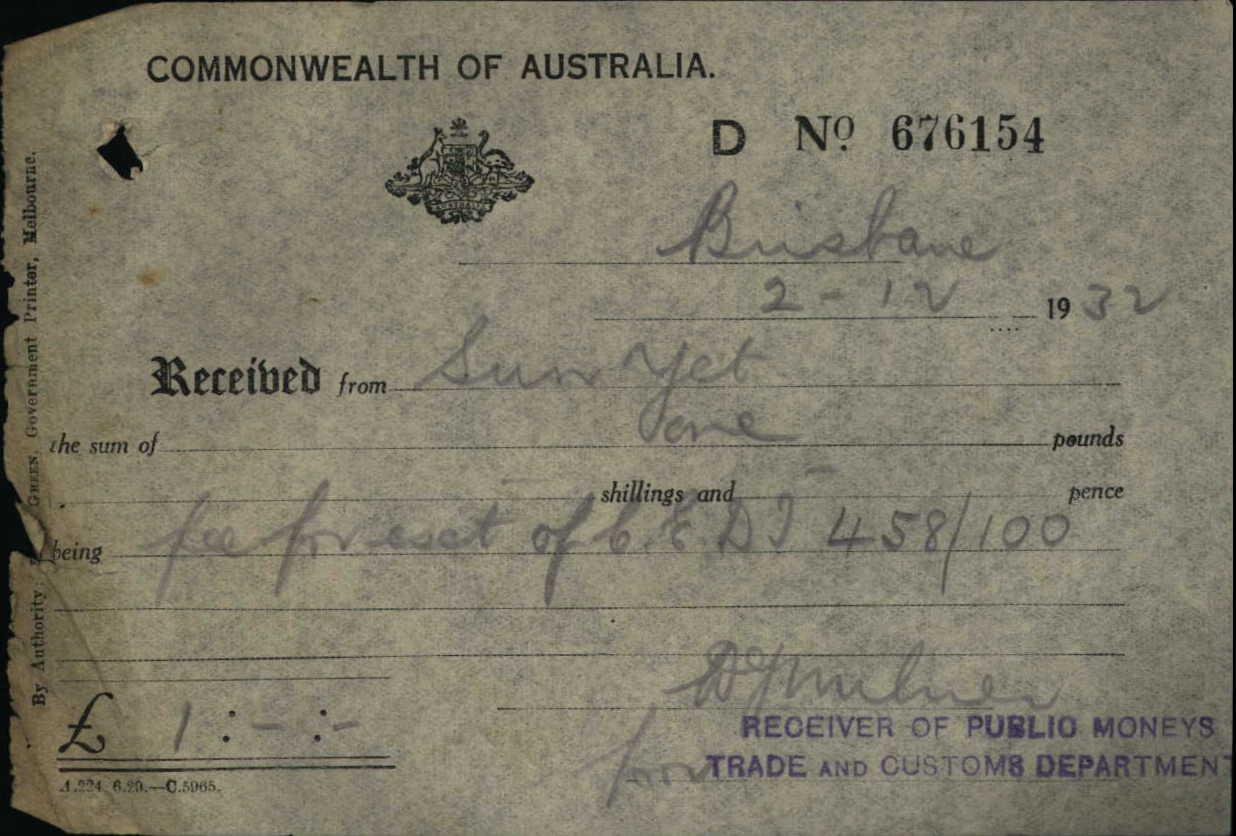 COMMONWEALTH OF AUSTRALIA.
AUSTRALIA
D Nº 676154
Brisbane
2 - 12 1932
Received from Sun Yet
the sum of one pounds
shillings and - pence
being fee for exet of C.E.D.T 458/100
£ 1 : - : -
Milner
for RECEIVER OF PUBLIC MONEYS
TRADE AND CUSTOMS DEPARTMENT
A.224. 6.29.—C.5965.
By Authority: GREEN, Government Printer, Melbourne.